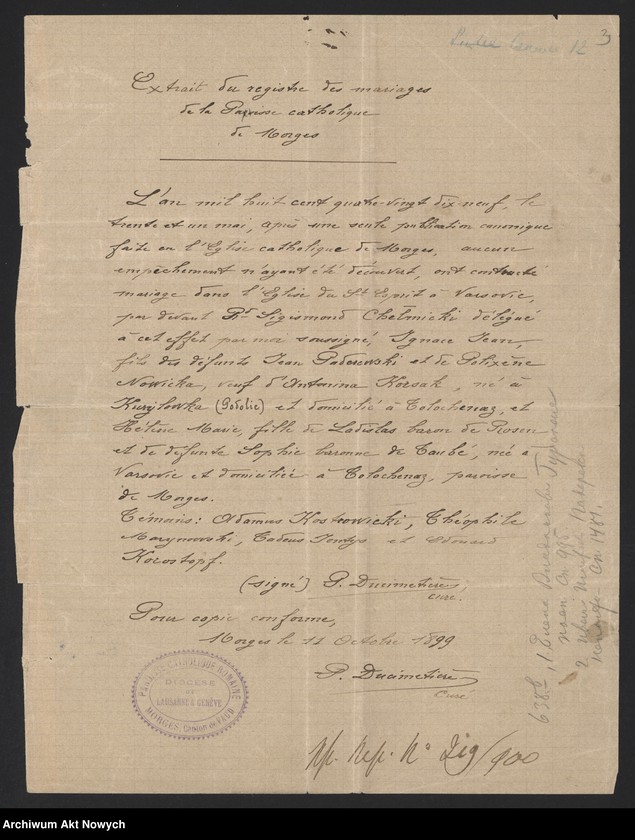 3
Extrait du registre des mariages
de la Paroisse catholique
de Morges
L'an mil huit cent quatre-vingt dix-neuf, le
trente et un mai, après une seule publication canonique
faite en l'Eglise catholique de Morges, aucun
empêchement n'ayant été découvert, ont contracté
mariage dans l'Eglise du St Esprit à Varsovie,
par devant Sigismond Chełmicki délégué
à cet effet par moi soussigné, Ignace Jean,
fils des défunts Jean Paderewski et de Polixène
Nowicka, veuf d'Antonina Korsak, né à
Kuryłowka (Podolie) et domicilié à Tolochenaz, et
Hélène Marie, fille de Ladislas baron de Rosen
et de défunte Sophie baronne de Taubé, née à
Varsovie et domiciliée à Tolochenaz, paroisse
de Morges.
Témoins: Adamus Kostrowicki, Théophile
Tadeus et Edouard
(signé) P. Ducimetière,
curé.
Pour copie conforme,
Morges le 11 Octobre 1899
P. Ducimetière
Curé
PAROISSE CATHOLIQUE ROMAINE
DIOCÈSE
DE
LAUSANNE & GENÈVE
MORGES, Canton de VAUD
No 219/900
Archiwum Akt Nowych